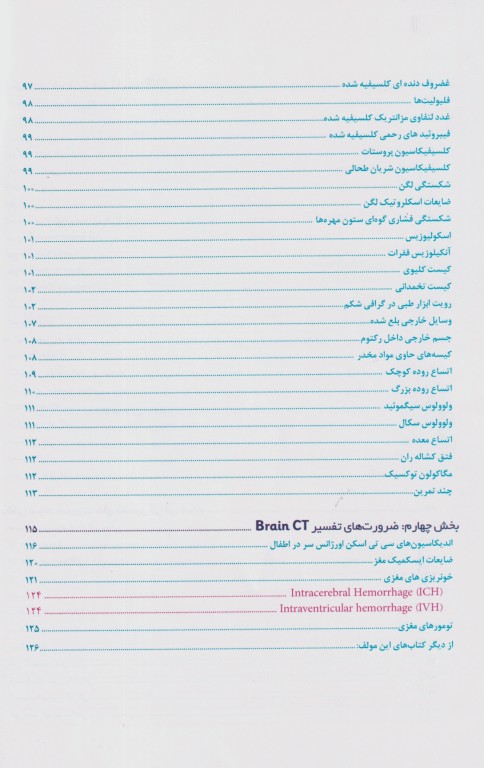 غضروف دنده ای کلسیفیه شده ۹۷
فلبولیت‌ها ۹۸
غدد لنفاوی مزانتریک کلسیفیه شده ۹۸
فیبروئید های رحمی کلسیفیه شده ۹۹
کلسیفیکاسیون پروستات ۹۹
کلسیفیکاسیون شریان طحالی ۹۹
شکستگی لگن ۱۰۰
ضایعات اسکلروتیک لگن ۱۰۰
شکستگی فشاری گوه‌ای ستون مهره‌ها ۱۰۰
اسکولیوزیس ۱۰۱
آنکیلوزیس فقرات ۱۰۱
کیست کلیوی ۱۰۱
کیست تخمدانی ۱۰۲
رویت ابزار طبی در گرافی شکم ۱۰۲
وسایل خارجی بلع شده ۱۰۷
جسم خارجی داخل رکتوم ۱۰۸
کیسه‌های حاوی مواد مخدر ۱۰۸
اتساع روده کوچک ۱۰۹
اتساع روده بزرگ ۱۱۰
ولوولوس سیگموئید ۱۱۱
ولوولوس سکال ۱۱۱
اتساع معده ۱۱۲
فتق کشاله ران ۱۱۲
مگاکولون توکسیک ۱۱۲
چند تمرین ۱۱۳
بخش چهارم: ضرورت‌های تفسیر Brain CT ۱۱۵
اندیکاسیون‌های سی تی اسکن اورژانس سر در اطفال ۱۱۶
ضایعات ایسکمیک مغز ۱۲۰
خونریزی های مغزی ۱۲۱
Intracerebral Hemorrhage (ICH) ۱۲۴
Intraventricular hemorrhage (IVH) ۱۲۴
تومورهای مغزی ۱۲۵
از دیگر کتاب‌های این مولف: ۱۲۶